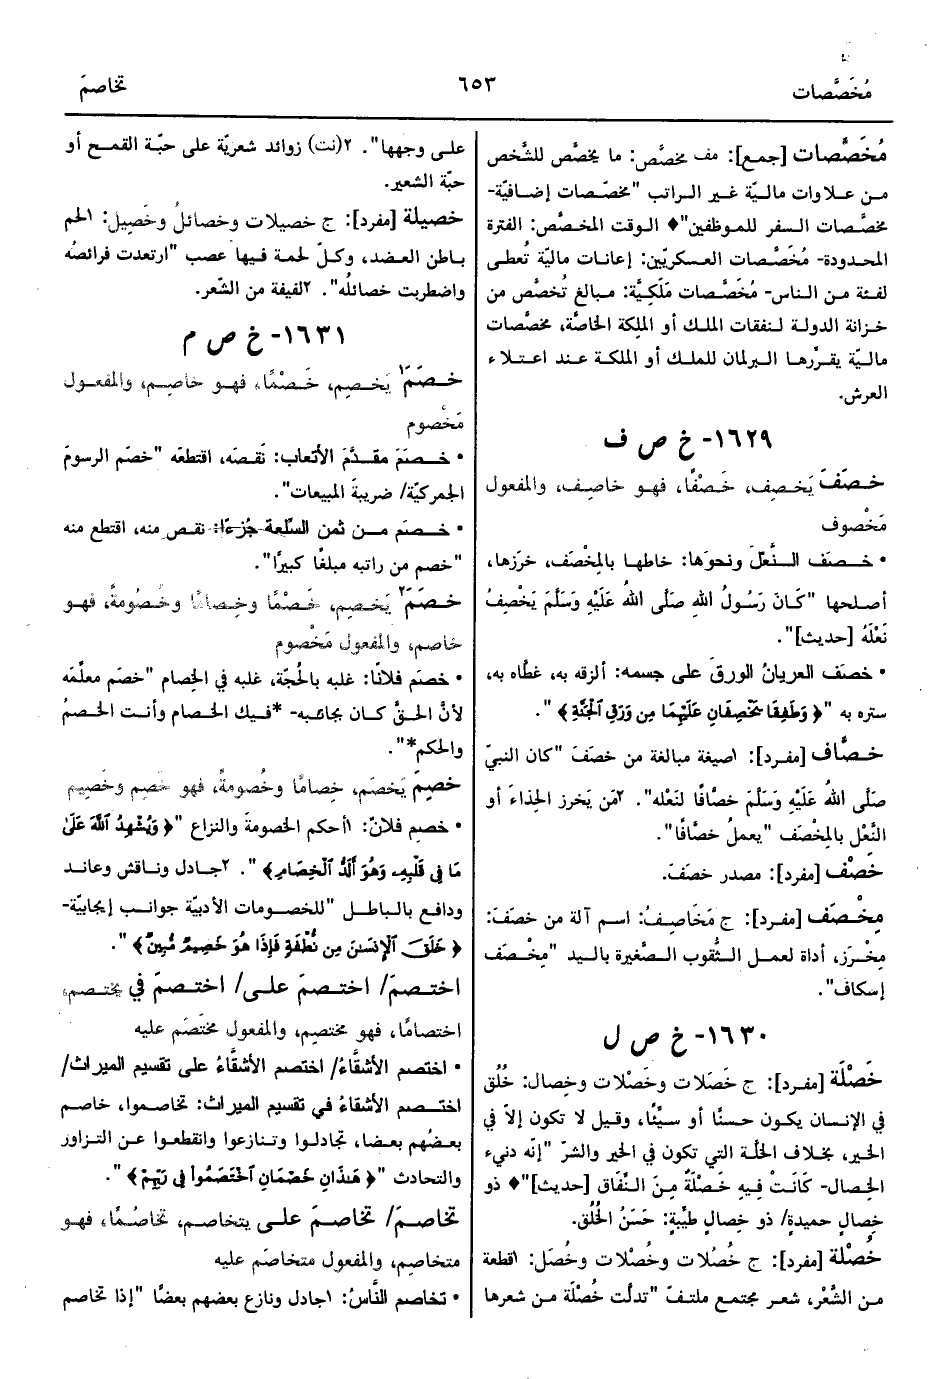 مُخَصَّصات
٦٥٣
تخاصمَ
مُخَصَّصات [جمع]: مف مخصَّص: ما يخصَّص للشَّخص
من علاوات ماليّة غير الراتب "مخصّصات إضافيّة-
مخصَّصات السفر للموظفين"♦ الوقت المخصَّص: الفترة
المحدودة- مُخصَّصات العسكريّين: إعانات ماليّة تُعطى
لفئة من الناس- مُخصَّصات مَلَكيَّة: مبالغ تُخصَّص من
خزانة الدولة لنفقات الملك أو الملكة الخاصَّة، مخصَّصات
ماليّة يقرّرها البرلمان للملك أو الملكة عند اعتلاء
العرش.
١٦٢٩- خ ص ف
خصَفَ يَخصِف، خَصْفًا، فهو خاصِف، والمفعول
مَخْصوف
• خصَف النَّعلَ ونحوَها: خاطها بالمِخْصَف، خرَزها،
أصلحها "كَانَ رَسُولُ اللهِ صَلَّى اللهُ عَلَيْهِ وَسَلَّمَ يَخْصِفُ
نَعْلَهُ [حديث]".
• خصَف العريانُ الورقَ على جسمه: ألزقه به، غطَّاه به،
ستره به "﴿وَطَفِقَا يَخْصِفَانِ عَلَيْهِمَا مِن وَرَقِ الْجَنَّةِ﴾".
خصَّاف [مفرد]: ١صيغة مبالغة من خصَفَ "كان النبيّ
صَلَّى اللهُ عَلَيْهِ وَسَلَّمَ خصَّافًا لنَعْله". ٢مَن يَخرز الحِذاءَ أو
النَّعْل بالمِخْصَف "يعملُ خصَّافًا".
خَصْف [مفرد]: مصدر خصَفَ.
مِخْصَف [مفرد]: ج مَخَاصِفُ: اسم آلة من خصَفَ:
مِخْرَز، أداة لعمل الثُّقوب الصَّغيرة باليد "مِخْصَف
إسكاف".
١٦٣٠- خ ص ل
خَصْلَة [مفرد]: ج خَصَلات وخَصْلات وخِصال: خُلُق
في الإنسان يكون حسنًا أو سيِّئًا، وقيل لا تكون إلاّ في
الخير، بخلاف الخلَّة التي تكون في الخير والشرّ "إنّه دنيء
الخصال- كَانَتْ فِيهِ خَصْلَةٌ مِنَ النِّفَاق [حديث]"♦ ذو
خِصالٍ حميدة/ ذو خِصالٍ طيِّبة: حَسَنُ الخُلُق.
خُصْلة [مفرد]: ج خُصُلات وخُصْلات وخُصَل: ١قطعة
من الشَّعْر، شعر مجتمع ملتفّ "تدلَّت خُصْلَة من شعرها
على وجهها". ٢(نت) زوائد شعريّة على حبّة القمح أو
حبّة الشعير.
خصيلة [مفرد]: ج خصيلات وخصائلُ وخَصِيل: ١لحم
باطن العضد، وكلّ لحمة فيها عصب "ارتعدت فرائصُه
واضطربت خصائلُه". ٢لفيفة من الشّعر.
١٦٣١- خ ص م
خصَمَ١ يَخصِم، خَصْمًا، فهو خاصِم، والمفعول
مَخْصوم
• خصَمَ مقدَّمَ الأتعاب: نَقصَه، اقتطعَه "خصَم الرسومَ
الجمركيّة/ ضريبةَ المبيعات".
• خصَم من ثمن السِّلعة جُزءًا: نقص منه، اقتطع منه
"خصم من راتبه مبلغًا كبيرًا".
خصَمَ٢ يَخصِم، خَصْمًا وخِصامًا وخُصُومةً، فهو
خاصم، والمفعول مَخْصوم
• خصَم فلانًا: غلبه بالحُجّة، غلبه في الخِصام "خصَم معلِّمَه
لأنَّ الحقَّ كان بجانبه- *فيك الخصام وأنت الخصمُ
والحكم*".
خصِمَ يَخصَم، خِصامًا وخُصومةً، فهو خَصِم وخَصِيم
• خصِم فلانٌ: ١أحكم الخصومة والنزاع "﴿وَيُشْهِدُ اللَّهَ عَلَىٰ
مَا فِي قَلْبِهِ وَهُوَ أَلَدُّ الْخِصَامِ﴾". ٢جادل وناقش وعاند
ودافع بالباطل "للخصومات الأدبيّة جوانب إيجابيّة-
﴿خَلَقَ الْإِنسَنَ مِن نُّطْفَةٍ فَإِذَا هُوَ خَصِيمٌ مُّبِينٌ﴾".
اختصمَ/ اختصمَ على/ اختصمَ في يختصم،
اختصامًا، فهو مختصِم، والمفعول مختصَم عليه
• اختصم الأشقَّاءُ/ اختصم الأشقَّاءُ على تقسيم الميراث/
اختصم الأشقاءُ في تقسيم الميراث: تخاصموا، خاصم
بعضُهم بعضا، تجادلوا وتنازعوا وانقطعوا عن التزاور
والتحادث "﴿هَذَانِ خَصْمَانِ اخْتَصَمُوا فِي رَبِّهِمْ﴾".
تخاصمَ/ تخاصمَ على يتخاصم، تخاصُمًا، فهو
متخاصِم، والمفعول متخاصَم عليه
• تخاصم النَّاسُ: ١جادل ونازع بعضهم بعضًا "إذا تخاصم